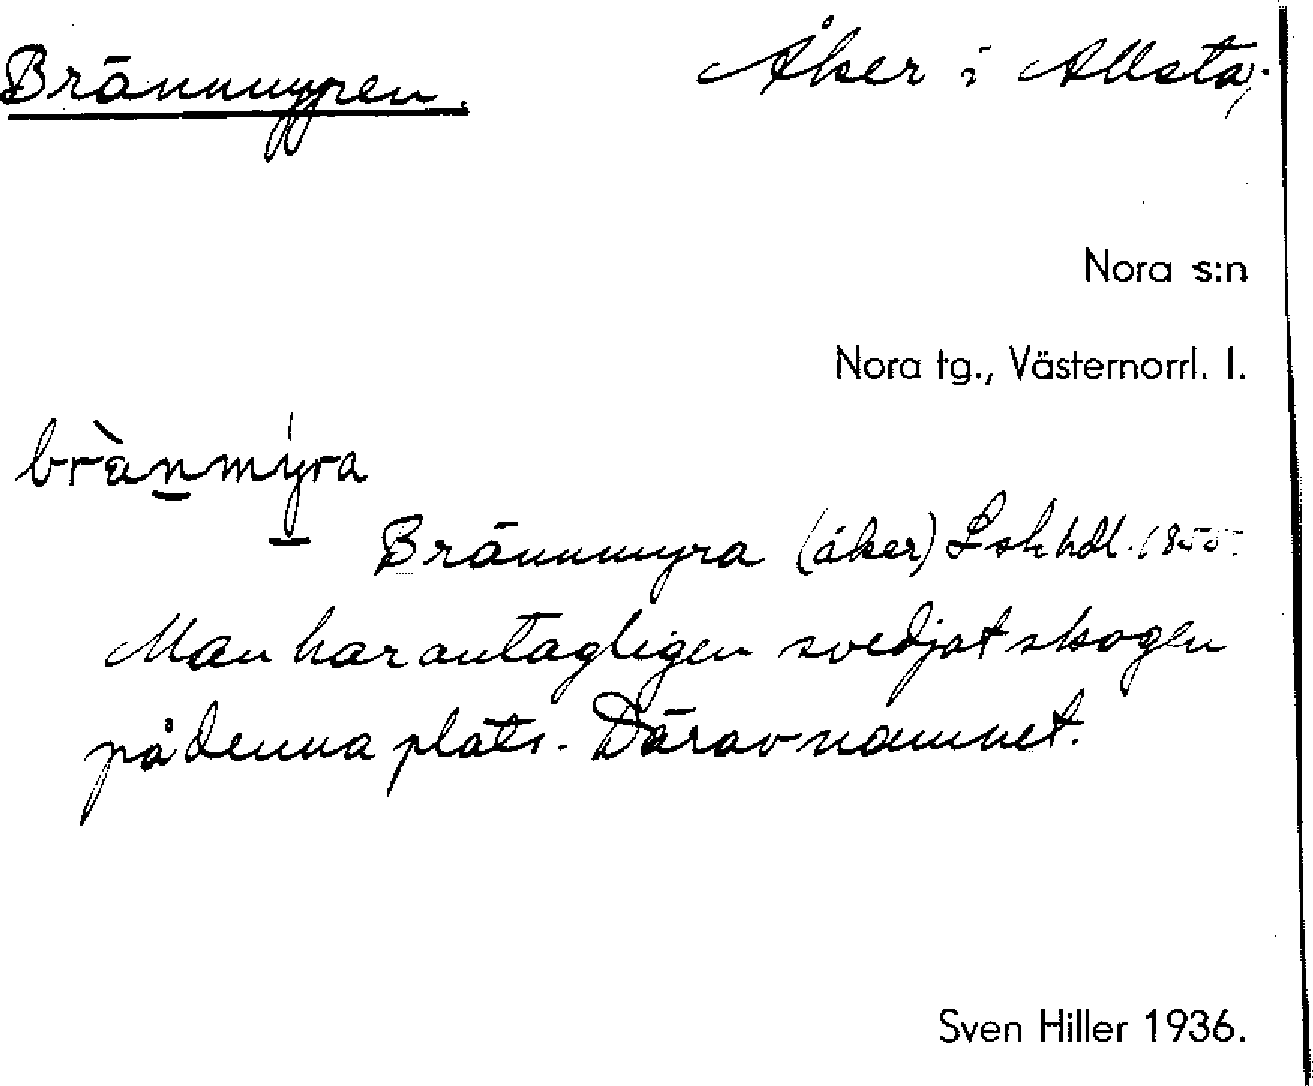 Brännmyren. Åker i Allsta,
Nora s:n
Nora tg., Västernorrl. l.
brànmýra
Brännmyra (åker) Lskhdl. 1855.
Man har antagligen svedjat skogen
på denna plats. Därav namnet.
Sven Hiller 1936.